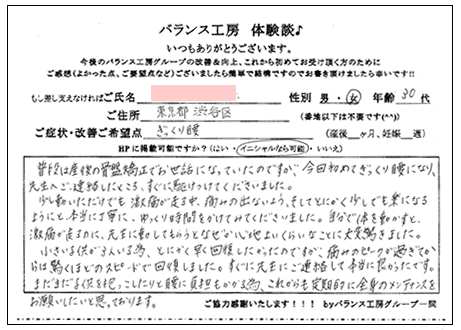 バランス工房 体験談♪
いつもありがとうございます。
今後のバランス工房グループの改善&向上、これから初めてお受け頂く方のために
ご感想(よかった点、ご要望点など)ございましたら簡単で結構ですのでお書き頂けましたら幸いです!!
もし差し支えなければご氏名 性別 男・女 年齢 30代
ご住所 東京都 渋谷区 (番地以下は不要です)
ご症状・改善ご希望点 ぎっくり腰 (産後 ヶ月、妊娠 週)
HPに掲載可能ですか?(はい・イニシャルなら可能・いいえ)
普段は産後の骨盤矯正でお世話になっていたのですが、今回初めてぎっくり腰になり、
先生へご連絡したところ、すぐに駆けつけてくださいました。
少し動いただけでも激痛が走る中、痛みの出ないよう、そしてとにかく少しでも楽になる
ようにと、本当に丁寧に、ゆっくり時間をかけてみてくださいました。自分で体を動かすと、
激痛が走るのに、先生に動かしてもらうとなぜか心地よいくらいなことに大変驚きました。
小さい子供が3人いる為、とにかく早く回復したかったのですが、痛みのピークが過ぎてか
らは驚くほどのスピードで回復しました。すぐに先生にご連絡して本当に良かったです。
まだまだ子供を抱っこしたりと腰に負担もかかる為、これからも定期的に全身のメンテナンスを
お願いしたいと思っております。
ご協力感謝いたします!!! byバランス工房グループ一同